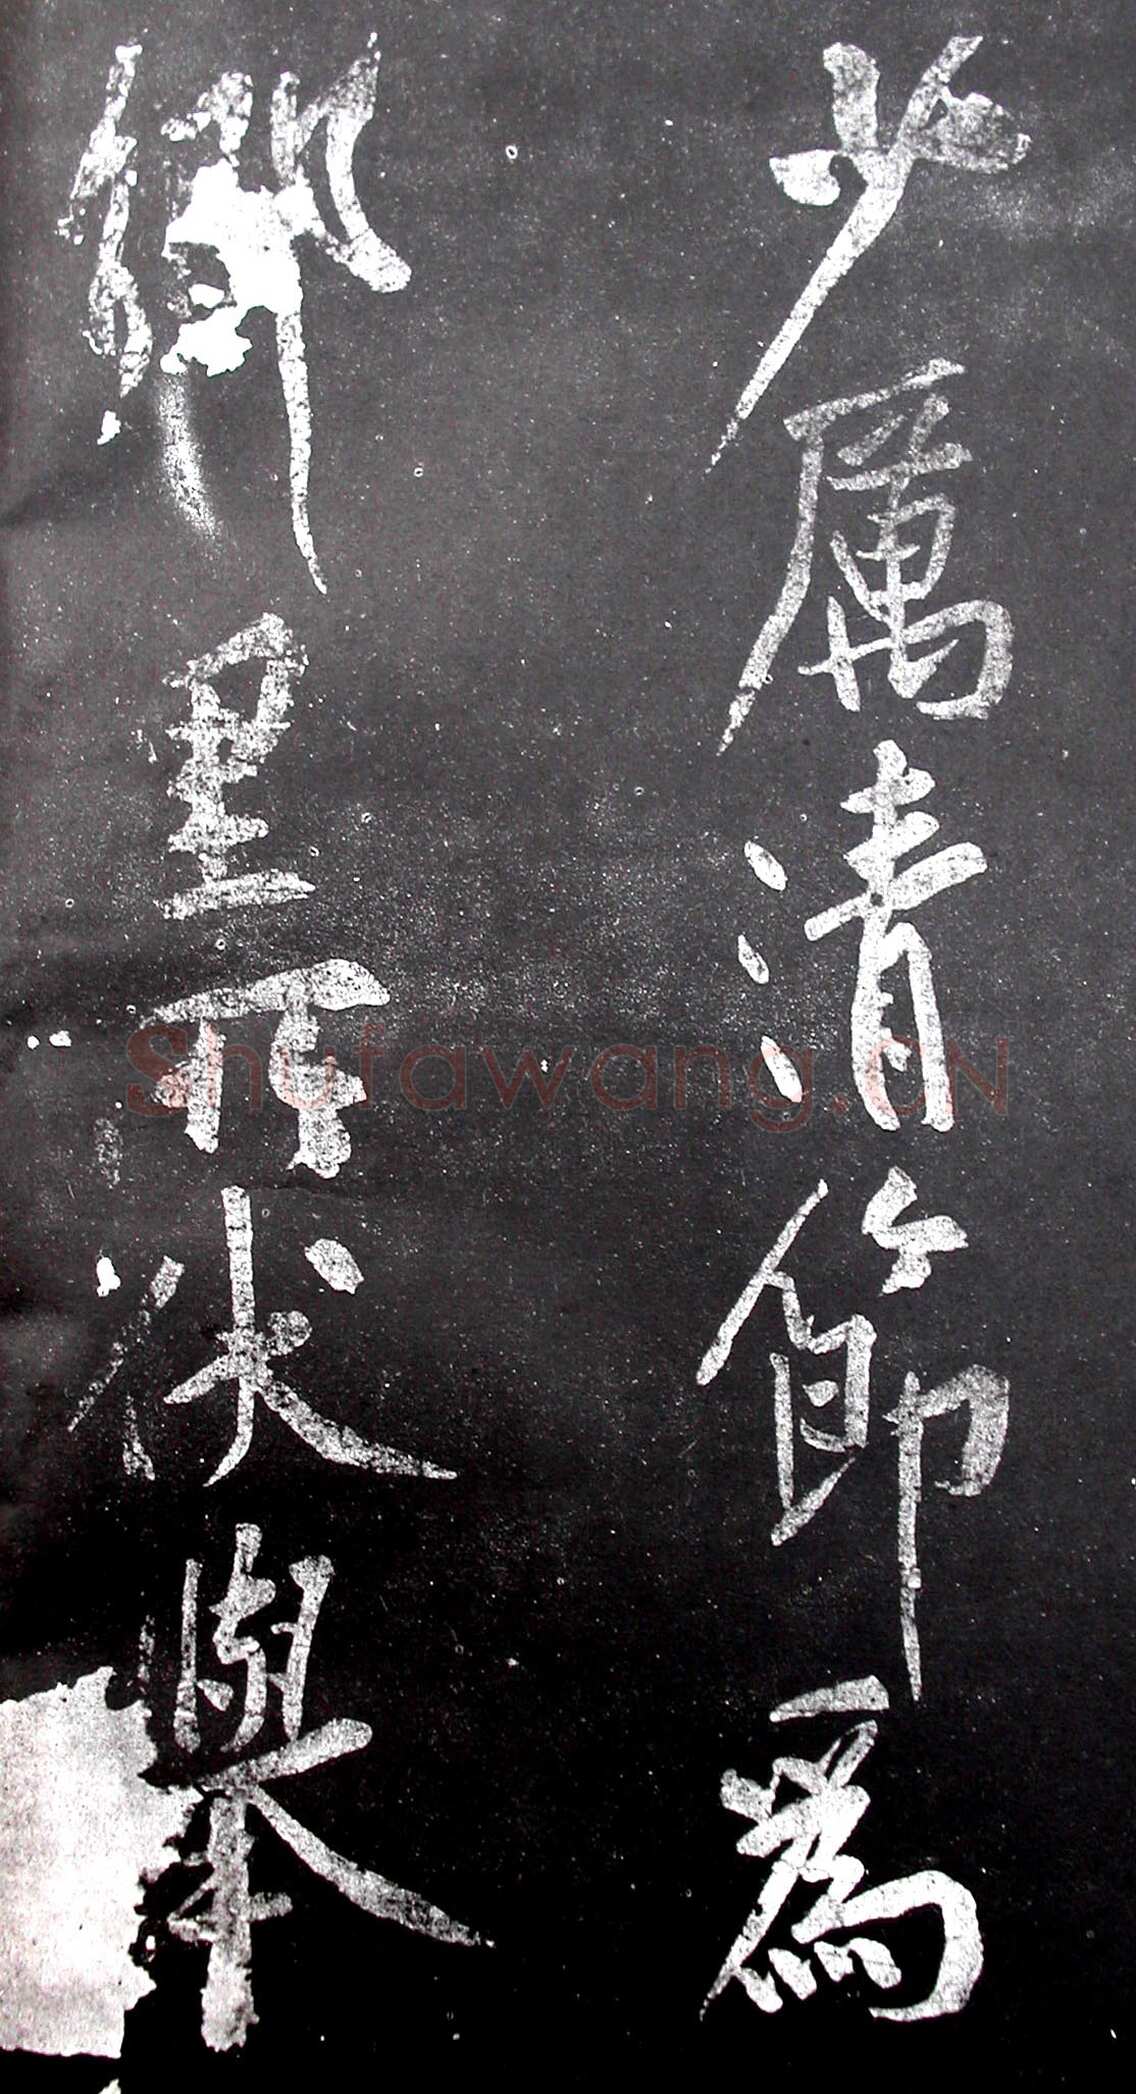 少厲清節為
鄉里所伏舉
Shufawang.CN